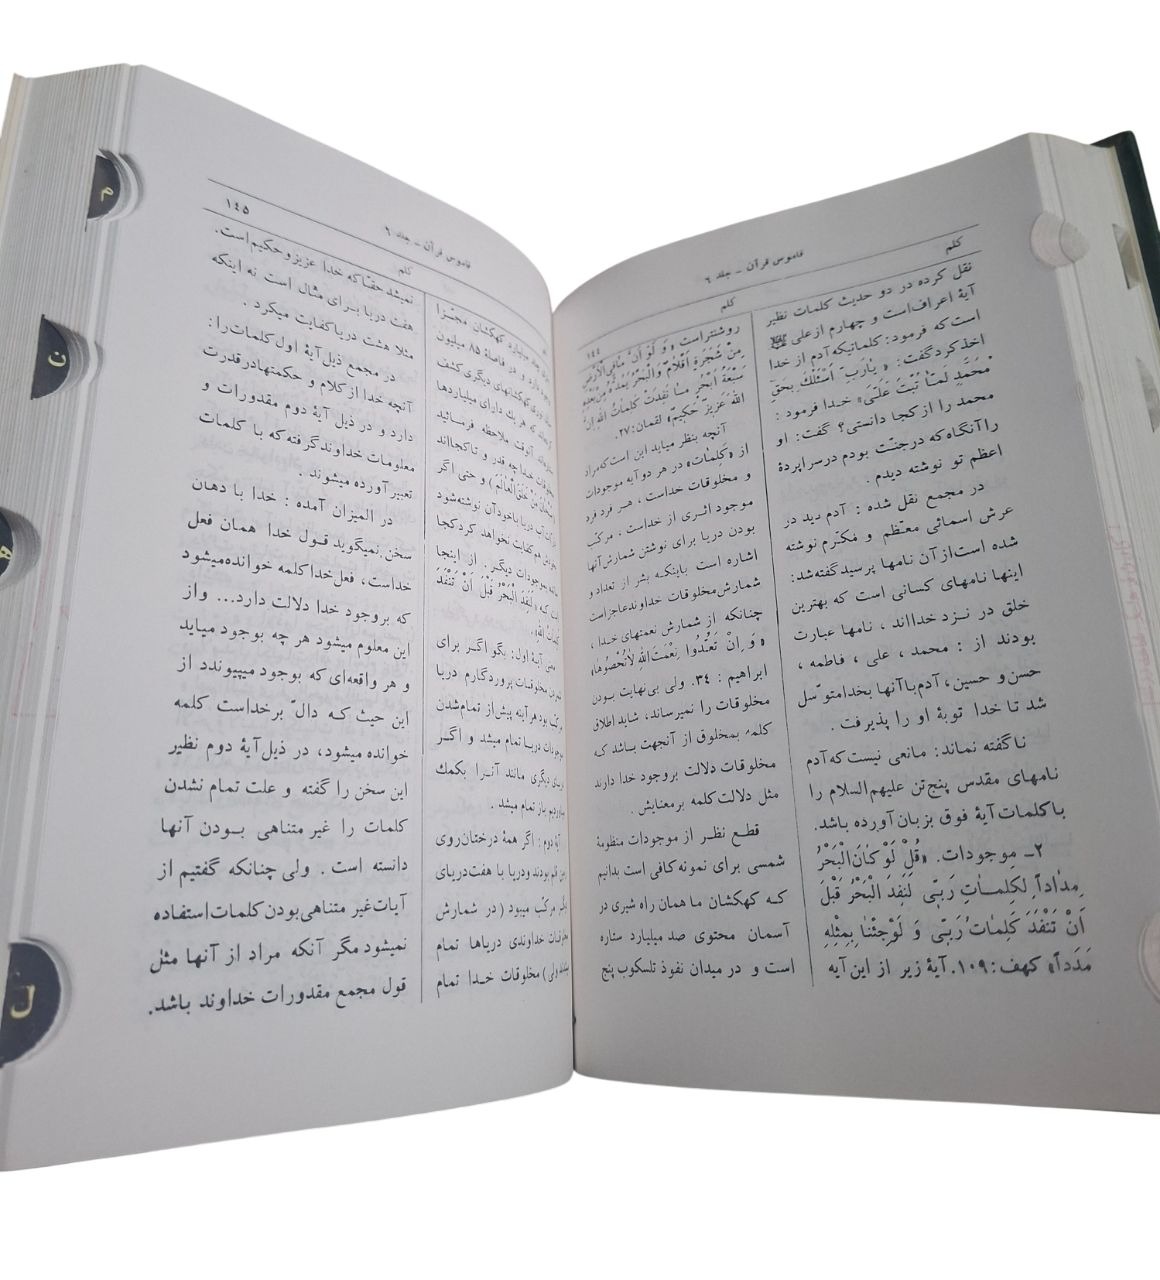 کلم
قاموس قرآن - جلد ۶
کلم
۱٤٤
نقل کرده در دو حدیث کلمات نظیر
آیهٔ اعراف است و چهارم از علی
اخذ کرد گفت: « یٰارَبِّ اَسْئَلُكَ بِحَقِّ
مُحَمَّدٍ لَمّٰا تُبْتَ عَلَیَّ» خدا فرمود :
محمد را از کجا دانستی؟ گفت: او
را آنگاه که در جنّت بودم در سراپردهٔ
اعظم تو نوشته دیدم .
در مجمع نقل شده : آدم دید در
عرش اسمائی معظّم و مکرّم نوشته
شده است از آن نامها پرسید گفته شد:
اینها نامهای کسانی است که بهترین
خلق در نـزد خدااند ، نامها عبارت
بودند از : محمد ، علی ، فاطمه ،
حسن و حسین، آدم با آنها بخدا متوسّل
شد تا خدا توبهٔ او را پذیرفت .
ناگفته نماند: مانعی نیست که آدم
نامهای مقدس پنج‌تن علیهم‌السلام را
با کلمات آیهٔ فوق بزبان آورده باشد.
۲ـ موجودات. «قُلْ لَوْ کٰانَ الْبَحْرُ
مِدٰاداً لِکَلِمـٰاتِ رَبّی لَنَفِدَ الْبَحْرُ قَبْلَ
اَنْ تَنْفَدَ کَلِمٰاتُ رَبّی وَ لَوْ جِئْنٰا بِمِثْلِهِ
مَدَداً» کهف: ۱۰۹. آیهٔ زیر از این آیه
روشنتر است «وَ لَوْ اَنَّ مٰا فِی الْاَرْضِ
مِنْ شَجَرَةٍ اَقْلٰامٌ وَ الْبَحْرُ یَمُدُّهُ مِنْ بَعْدِهِ
سَبْعَةُ اَبْحُرٍ مٰا نَفِدَتْ کَلِمٰاتُ اللهِ اِنَّ
اللهَ عَزیزٌ حَکیمٌ» لقمان: ۲۷.
آنچه بنظر میاید این است که مراد
از «کَلِمٰات» در هر دو آیه موجودات
و مخلوقات خداست ، هـر فرد فرد
موجود اثـری از خداست . مرکّب
بودن دریا برای نوشتن شمارش آنها
اشاره است باینکـه بشر از تعداد و
شمارش مخلوقات خداوند عاجز است
چنانکه از شمارش نعمتهای خدا ،
«وَ اِنْ تَعُدُّوا نِعْمَتَ اللهِ لٰا تُحْصُوهٰا»
ابراهیم : ۳٤. ولی بی‌نهایت بـودن
مخلوقات را نمیرساند، شاید اطلاق
کلمه بمخلوق از آنجهت باشد که
مخلوقات دلالت بر وجود خدا دارند
مثل دلالت کلمه بر معنایش .
قطع نظـر از موجودات منظومهٔ
شمسی برای نمونه کافی است بدانیم
کـه کهکشان ما همان راه شیری در
آسمان محتوی صد میلیارد ستاره
است و در میدان نفوذ تلسکوپ پنج
قاموس قرآن - جلد ۶
کلم
۱٤٥
کهکشان مجـزا
در فاصلهٔ ۸۵ میلیون
کهکشانهای دیگری کشف
که هر یك دارای میلیاردها
آنوقت ملاحظه فرمـائید
خدا چه قدر و تا کجا اند
خَلَقَ الْعٰالَمَ) و حتی اگر
دریا با خود آن نوشته شود
هم کفایت نخواهد کرد کجا
بموجودات دیگر. از اینجا
که « لَنَفِدَ الْبَحْرُ قَبْلَ اَنْ تَنْفَدَ
آیهٔ اول: بگو اگـر برای
مخلوقات پروردگارم دریا
بود هر آینه پیش از تمام شدن
دریـا تمام میشد و اگـر
دیگری مانند آنـرا بکمك
باز تمام میشد .
دوم : اگر همهٔ درختان روی
قلم بودند و دریا با هفت دریای
مرکّب میبود ( در شمارش
خداوندی دریاها تمام
ولی ) مخلوقات خـدا تمام
نمیشد حقّا که خدا عزیز و حکیم است.
هفت دریا بـرای مثال است نه اینکه
مثلا هشت دریا کفایت میکرد .
در مجمع ذیل آیهٔ اول کلمات را:
آنچه خدا از کلام و حکمتها در قدرت
دارد و در ذیل آیهٔ دوم مقدورات و
معلومات خداوند گرفته که با کلمات
تعبیر آورده میشوند .
در المیزان آمده : خدا با دهان
سخن نمیگوید قول خدا همان فعل
خداست، فعل خدا کلمه خوانده میشود
که بر وجود خدا دلالت دارد... و از
این معلوم میشود هر چه بوجود میاید
و هر واقعه‌ای که بوجود میپیوندد از
این حیث کـه دالّ بر خداست کلمه
خوانده میشود، در ذیل آیهٔ دوم نظیر
این سخن را گفته و علت تمام نشدن
کلمات را غیر متناهی بـودن آنها
دانسته است . ولی چنانکه گفتیم از
آیات غیر متناهی بودن کلمات استفاده
نمیشود مگر آنکه مراد از آنها مثل
قول مجمع مقدورات خداوند باشد.
م
ن
ه
ل